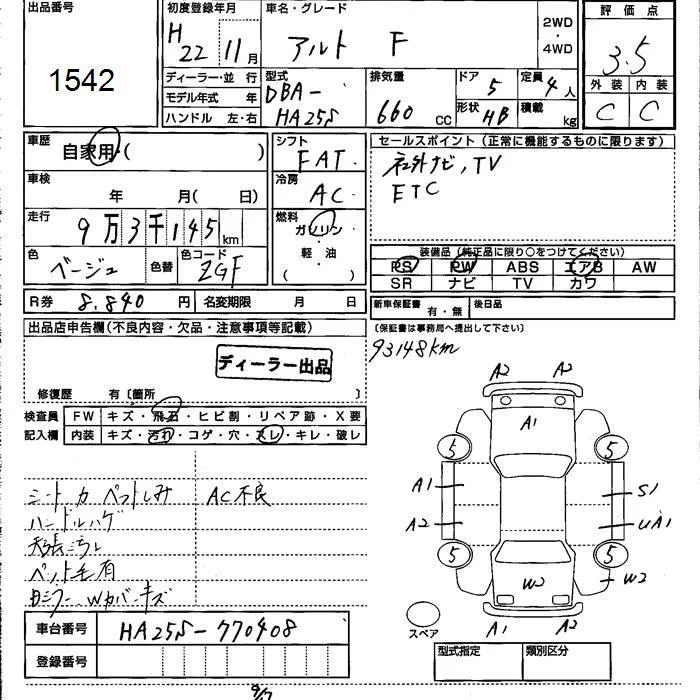 出品番号
1542
初度登録年月
H 22 11月
車名・グレード
アルト F
2WD・4WD
評価点
3.5
外装 内装
C C
ディーラー・並行
モデル年式 年
ハンドル 左・右
型式
DBA-
HA25S
排気量
660 CC
ドア 5
形状 HB
定員 4人
積載 kg
車歴
自家用・( )
車検
年 月( 日)
走行
9万3千145km
色
ベージュ 色替
色コード
ZGF
シフト
FAT
冷房
AC
燃料
ガソリン
・
軽油
( )
セールスポイント(正常に機能するものに限ります)
社外ナビ,TV
ETC
装備品(純正品に限り○をつけてください)
PS PW ABS エアB AW
SR ナビ TV カワ
R券 8,840円
名変期限 月 日
新車保証書 有・無
後日品
(保証書は事務局へ提出して下さい)
93148km
出品店申告欄(不良内容・欠品・注意事項等記載)
ディーラー出品
修復歴 有〔箇所 〕
検査員記入欄
FW キズ・飛石・ヒビ割・リペア跡・X要
内装 キズ・汚れ・コゲ・穴・スレ・キレ・破レ
シートカ ペットしみ
AC不良
ハンドルハゲ
天張汚レ
ペット毛有
Wカバーキズ
車台番号 HA25S-770408
登録番号
A2 A2
A1
5 5
A1 S1
A2 UA1
5 5
W2 W2
A1 A2
スペア
型式指定 類別区分